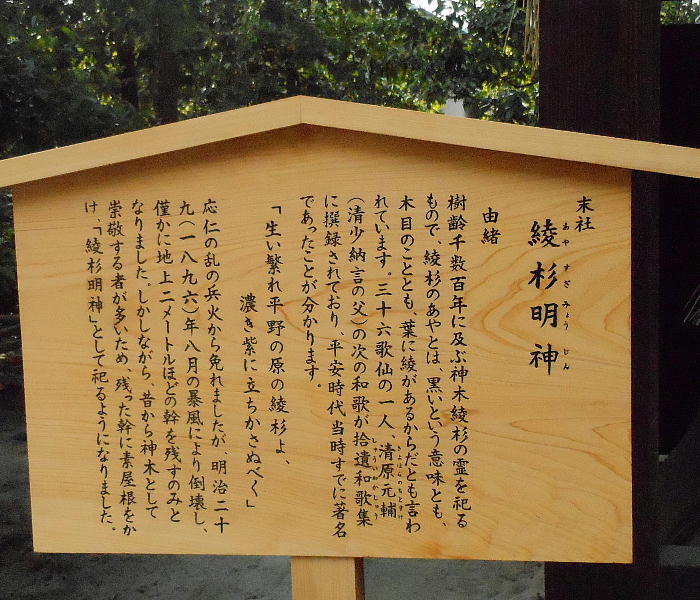 末社
綾杉明神
あやすぎみょうじん
由緒
樹齢千数百年に及ぶ神木綾杉の霊を祀る
もので、綾杉のあやとは、黒いという意味とも、
木目のこととも、葉に綾があるからだとも言わ
れています。三十六歌仙の一人、清原元輔
きよはらのもとすけ
(清少納言の父)の次の和歌が拾遺和歌集
しゅういわかしゅう
に撰録されており、平安時代当時すでに著名
であったことが分かります。
「生い繁れ平野の原の綾杉よ、
濃き紫に立ちかさぬべく」
応仁の乱の兵火から免れましたが、明治二十
九(一八九六)年八月の暴風により倒壊し、
僅かに地上二メートルほどの幹を残すのみと
なりました。しかしながら、昔から神木として
崇敬する者が多いため、残った幹に素屋根をか
け、「綾杉明神」として祀るようになりました。